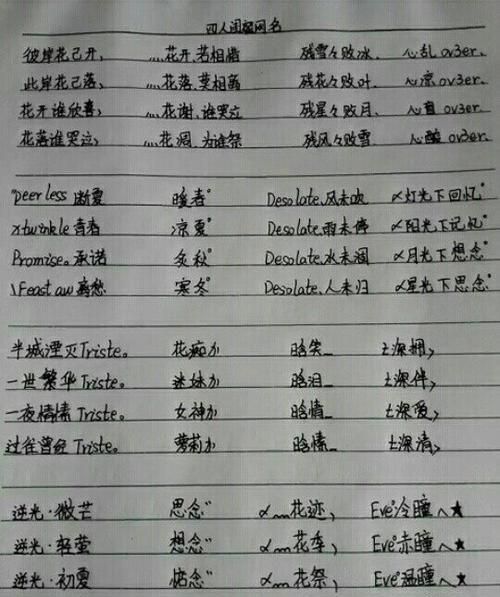 四人闺蜜网名
彼岸花已开, ....花开.若相惜 残雪々败冰. 心乱 ov3er.
此岸花已落, ....花落.莫相离 残花々败叶. 心凉 ov3er.
花开谁欣喜, ....花谢.谁哭泣 残星々败月. 心言 ov3er.
花落谁哭泣, ....花凋.为谁祭 残风々败雪 心酸 ov3er.
"peerless 断夏 暖春° Desolate.风未吹 ๙灯光下回忆"
xtwinkle 青春 凉夏° Desolate.雨未停 ๙阳光下记忆"
Promise。承诺 冬秋° Desolate.水未涸 ๙月光下想念"
\Feast aw 离愁 寒冬° Desolate.人未归 ๙星光下思念"
半城湮灭Triste。 花痴か 晗笑_ 土深拥,
一世繁华Triste。 迷妹か 晗泪_ 土深伴,
一夜情愫Triste。 女神か 晗情_ 土深爱,
过往曾经 Triste。 萝莉か 晗愫_ 土深清,
逆光·微芒 思念" ๙﹏花迹, Eve°冷瞳へ★
逆光·轻萤 想念" ๙﹏花季, Eve°赤瞳へ★
逆光·初夏 惦念" ๙﹏花祭, Eve°温瞳へ★